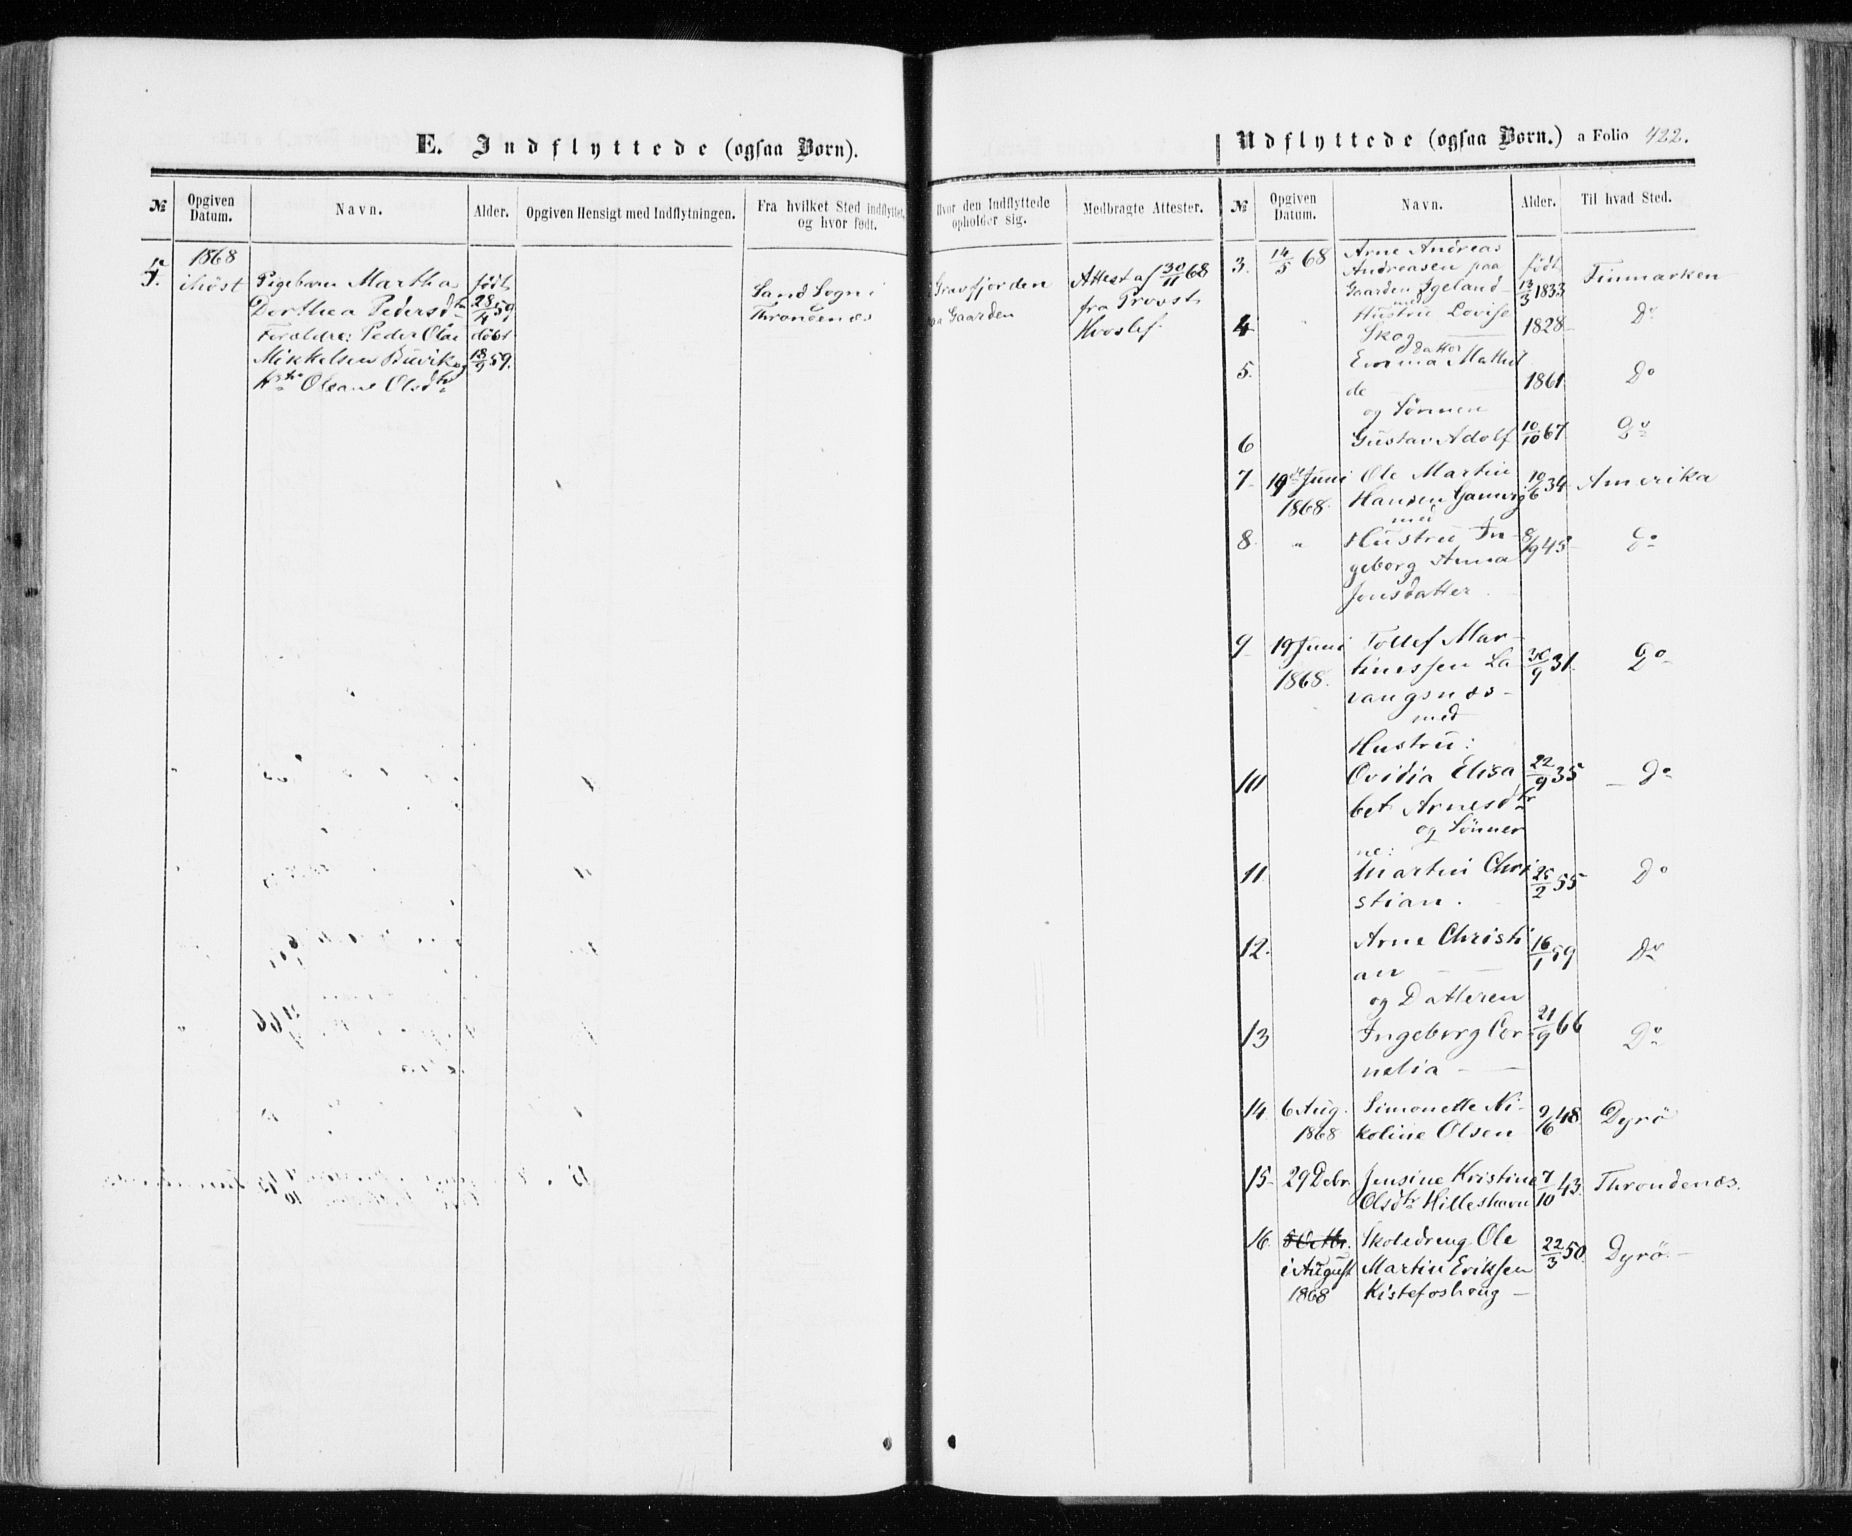 E. Indflyttede (ogsaa Børn).
№
Opgiven Datum.
Navn.
Alder.
Opgiven Hensigt med Indflytningen.
Fra hvilket Sted indflyttet, og hvor født.
Hvor den Indflyttede opholder sig.
Medbragte Attester.
1868
ihöst
Pigebarn Martha
Dorthea Pedersdtr
Forældre: Peder Olai
Mikkelsen Buvik og
Olsdtr
født
28/4 59
döbt
18/9 59.
Sand Sogn i
Throndenæs
Gravfjorden
paa Gaarden
Attest af 30/11 68
fra Provst
Hvoslef.
Udflyttede (ogsaa Børn.) a Folio 422.
№
Opgiven Datum.
Navn.
Alder.
Til hvad Sted.
3. 14/5 68 Arne Andreas
Andreasen paa
Gaarden Ygeland
født
13/3 1833 Finmarken
med
4 " Hustru Lovise
Skog 1828 Do
Datter
5. Emma Mathil
de 1861 Do
og Sönnen
6 Gustav Adolf 10/10 67 Do
7 19de Juni Ole Martin 10/6 34 Amerika
1868. Hansen Gamvig
med
8. " Hustru In-
geborg Anna
Jensdatter. 8/9 45 Do
9 19 Juni Tollef Mar-
1868. tinussen La-
vangsnæs 30/9 31. Do
med
Hustru:
10 Ovidia Elisa 22/9 35 Do
bet Arnesdtr
og Sönner
ne:
11. Martin Chri
stian. 25/2 55 Do
12. Arne Christi
an 16/1 59 Do
og Datteren
13 Ingeborg Cor
nelia 21/9 66 Do
14. 6 Aug. Simonette Ni-
1868 koline Olsen 9/6 48 Dyrö
15. 29 Debr. Jensine Kristine 7/10 43. Throndenæs.
Olsdtr Hilleshavn
16. Skoledreng Ole 22/3 50. Dyrö.
i August Martin Eriksen
1868 Kistefoshoug